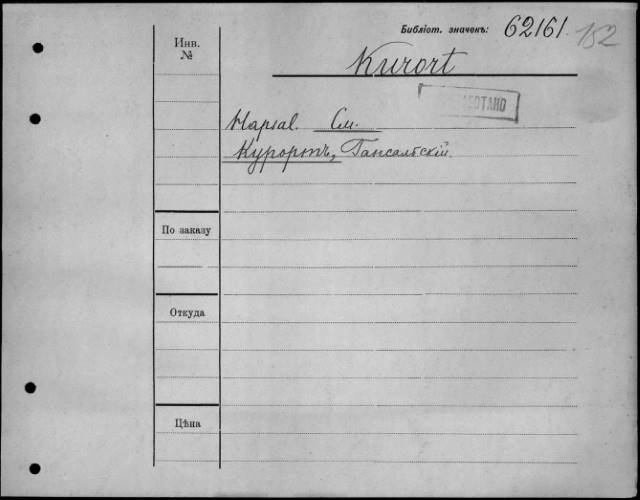 Библіот. значекъ: 62161. 182
Инв.
№
Kurort
Hapsal. См.
Курортъ, Гапсальскій.
По заказу
Откуда
Цѣна